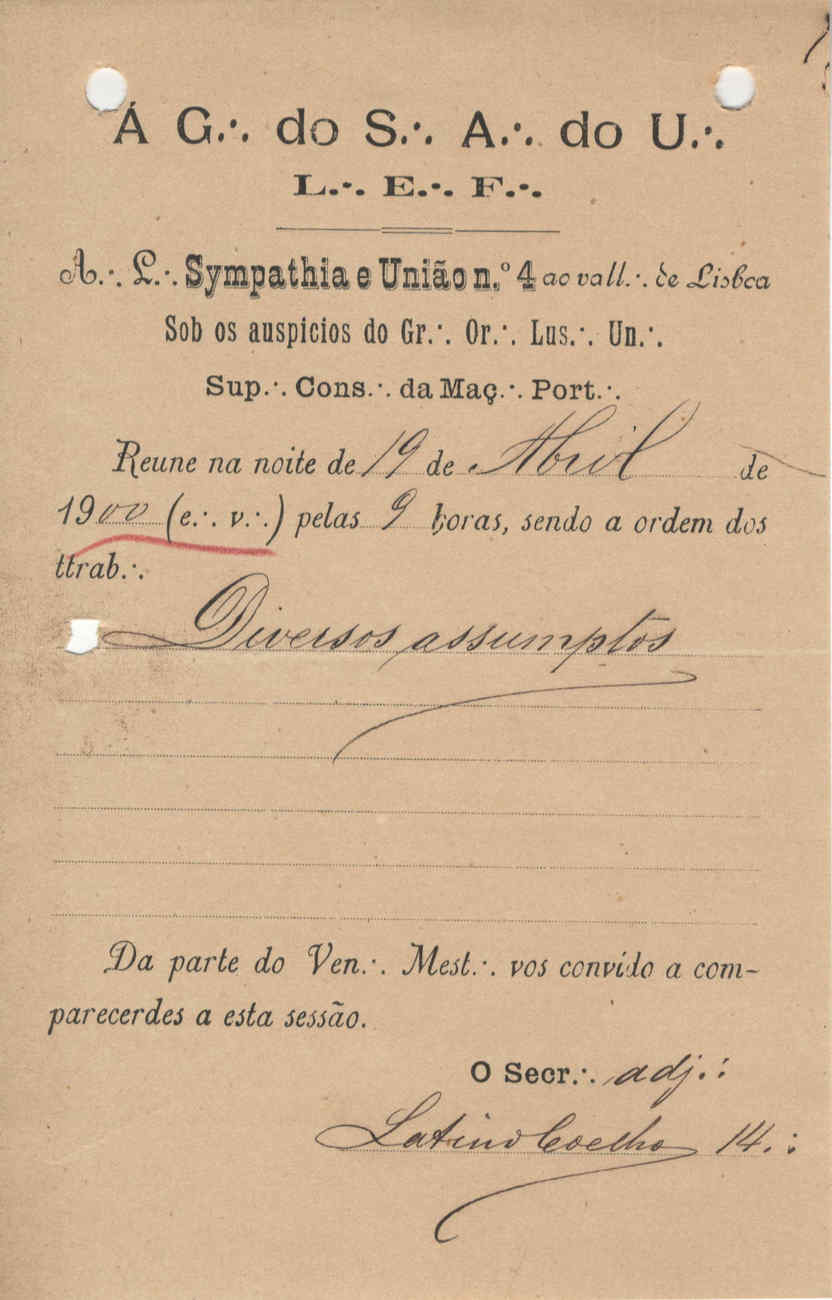 Á G.·. do S.·. A.·. do U.·.
L.·. E.·. F.·.
A.·. L.·. Sympathia e União n.º 4 ao vall.·. de Lisboa
Sob os auspicios do Gr.·. Or.·. Lus.·. Un.·.
Sup.·. Cons.·. da Maç.·. Port.·.
Reune na noite de 19 de Abril de
1900 (e.·. v.·.) pelas 9 horas, sendo a ordem dos
ttrab.·.
Diversos assumptos
Da parte do Ven.·. Mest.·. vos convido a com-
parecerdes a esta sessão.
O Secr.·. adj.·.
Latino Coelho 14.·.